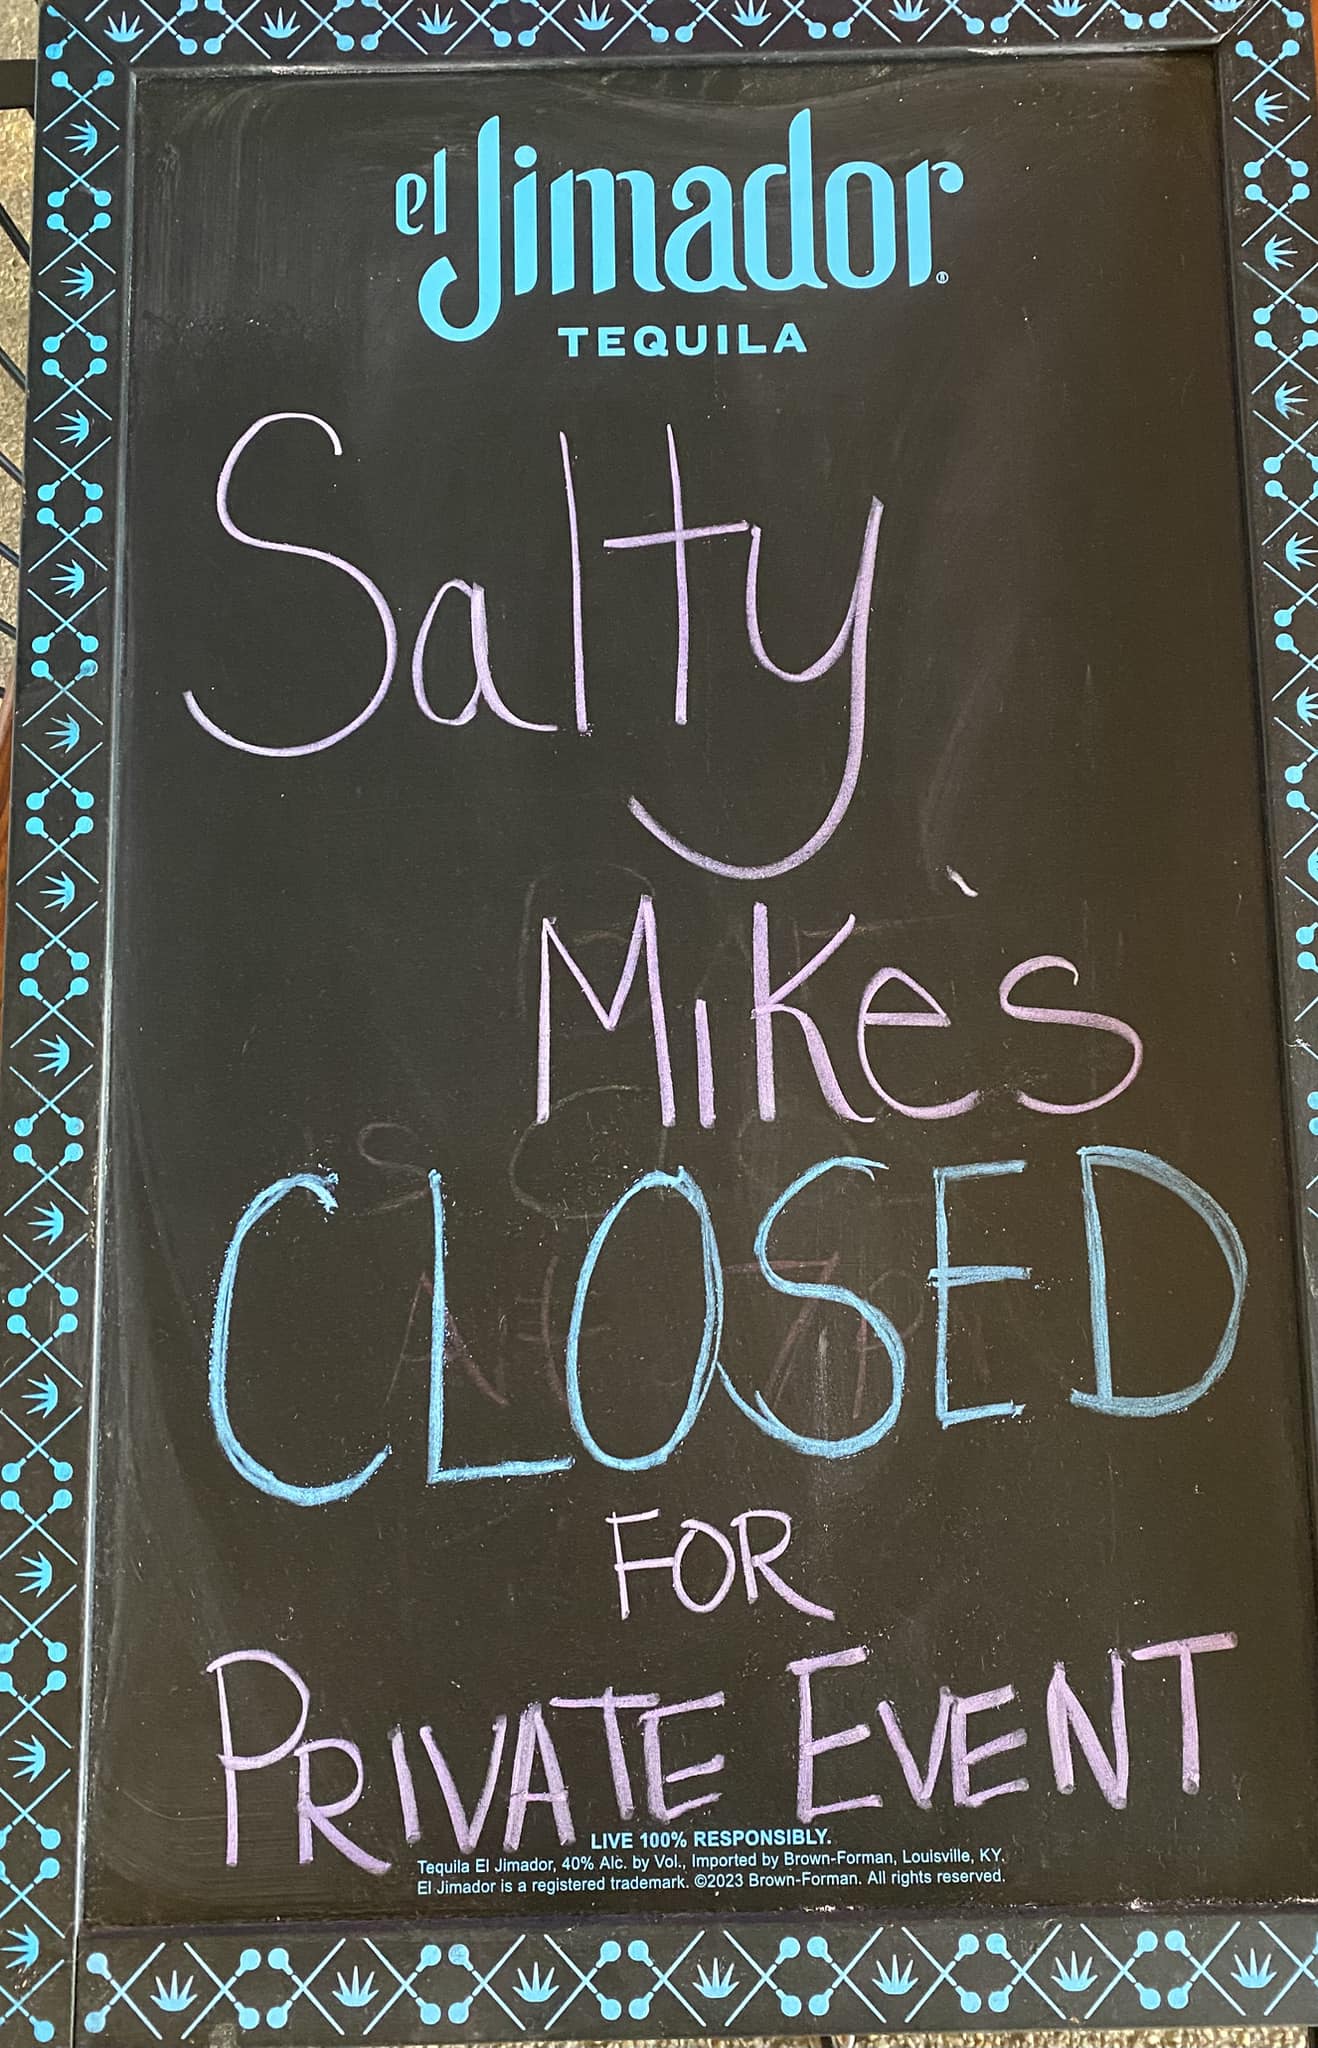 el Jimador®
TEQUILA
Salty
Mike's
CLOSED
FOR
PRIVATE EVENT
LIVE 100% RESPONSIBLY.
Tequila El Jimador, 40% Alc. by Vol., Imported by Brown-Forman, Louisville, KY.
El Jimador is a registered trademark. ©2023 Brown-Forman. All rights reserved.